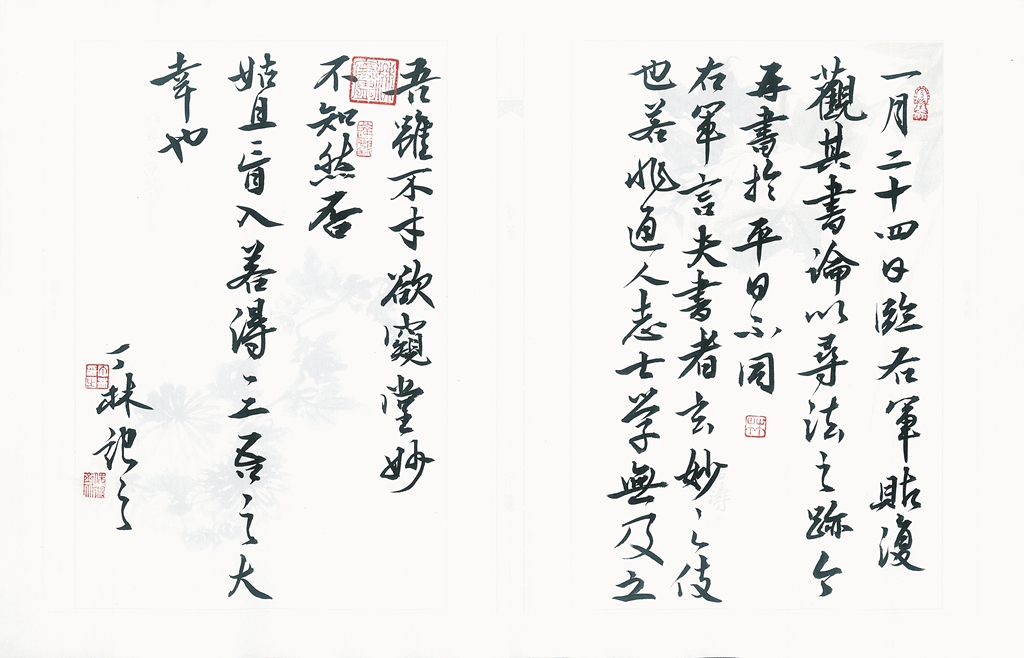 一月二十四日臨右軍貼復
觀其書論以尋法之跡今
再書於平日不同
右軍言夫書者玄妙之伎
也若非通人志士学無及之
吾雖不才欲窺堂妙
不知然否
姑且盲入若得一二吾之大
幸也
丁林記之